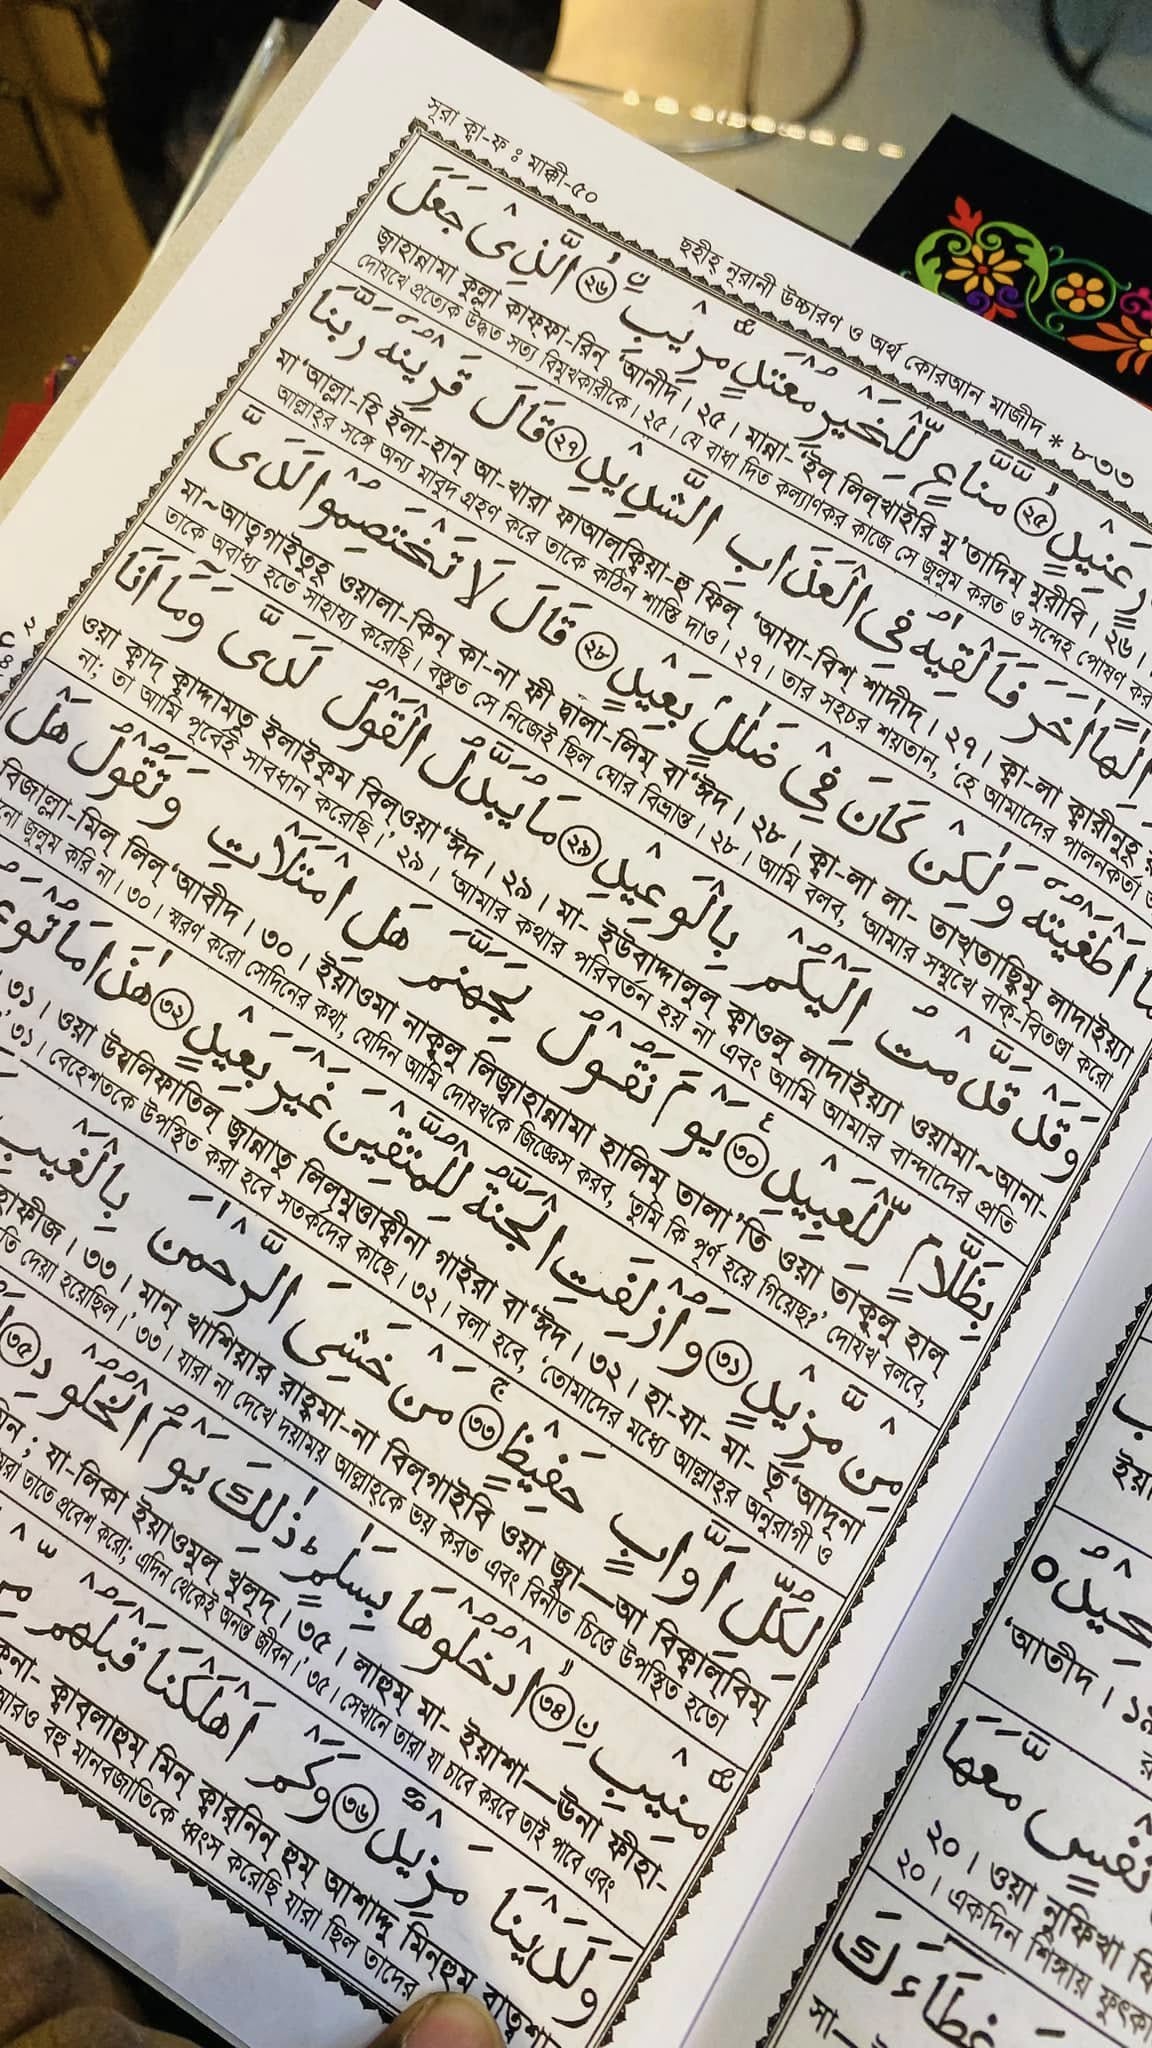 সূরা ক্বা-ফ ঃ মাক্কী-৫০
ছহীহ্ নূরানী উচ্চারণ ও অর্থ কোরআন মাজীদ * ৮৩৩
عَنِيْدٍ ۲۵ مَّنَّاعٍ لِّلْخَيْرِ مُعْتَدٍ مُّرِيْبِ ۲۶ الَّذِىْ جَعَلَ
জ্বাহান্নামা কুল্লা কাফ্ফা-রিন্ ‘আনীদ। ২৫। মান্না-‘ইল্ লিল্খাইরি মু’তাদিম্ মুরীবি। ২৬।
দোযখে প্রত্যেক উদ্ধত সত্য বিমুখকারীকে। ২৫। যে বাধা দিত কল্যাণকর কাজে সে জুলুম করত ও সন্দেহ পোষণ
اِلٰهًا اٰخَرَ فَاَلْقِيٰهُ فِى الْعَذَابِ الشَّدِيْدِ ২৭ قَالَ قَرِيْنُهٗ رَبَّنَا
মা‘আল্লা-হি ইলা-হান্ আ-খারা ফাআল্ক্বিয়া-হু ফিল্ ‘আযা-বিশ্ শাদীদ্। ২৭। ক্বা-লা ক্বারীনুহূ
আল্লাহ্‌র সঙ্গে অন্য মাবুদ গ্রহণ করে তাকে কঠিন শাস্তি দাও। ২৭। তার সহচর শয়তান, ‘হে আমাদের পালনকর্তা
اَطْغَيْتُهٗ وَلٰكِنْ كَانَ فِىْ ضَلٰلٍۭ بَعِيْدٍ ২৮ قَالَ لَا تَخْتَصِمُوْا لَدَىَّ
মা~আত্বগাইতুহূ ওয়ালা-কিন্ কা-না ফী দ্বালা-লিম্ বা‘ঈদ। ২৮। ক্বা-লা লা- তাখ্তাছ্বিমূ লাদাইয়্যা
তাকে অবাধ্য হতে সাহায্য করেছি। বস্তুত সে নিজেই ছিল ঘোর বিভ্রান্ত। ২৮। আমি বলব, ‘আমার সম্মুখে বাক্-বিতণ্ডা করো
وَقَدْ قَدَّمْتُ اِلَيْكُمْ بِالْوَعِيْدِ ২৯ مَا يُبَدَّلُ الْقَوْلُ لَدَىَّ وَمَاۤ اَنَا
ওয়া ক্বাদ্ ক্বাদ্দামতু ইলাইকুম বিল্ওয়া‘ঈদ। ২৯। মা- ইউবাদ্দালুল্ ক্বাওলু লাদাইয়্যা ওয়ামা~আনা-
না; তা আমি পূর্বেই সাবধান করেছি।’ ২৯। ‘আমার কথার পরিবর্তন হয় না এবং আমি আমার বান্দাদের প্রতি
بِظَلَّامٍ لِّلْعَبِيْدِ ৩০ يَوْمَ نَقُوْلُ لِجَهَنَّمَ هَلِ امْتَلَاْتِ وَتَقُوْلُ هَلْ
বিজাল্লা-মিল্ লিল্ ‘আবীদ। ৩০। ইয়াওমা নাকূলু লিজ্বাহান্নামা হালিম্ তালা’তি ওয়া তাকূলু হাল্
জুলুম করি না। ৩০। স্মরণ করো সেদিনের কথা, যেদিন আমি দোযখকে জিজ্ঞেস করব, ‘তুমি কি পূর্ণ হয়ে গিয়েছ?’ দোযখ বলবে,
مِنْ مَّزِيْدٍ ৩১ وَاُزْلِفَتِ الْجَنَّةُ لِلْمُتَّقِيْنَ غَيْرَ بَعِيْدٍ ৩২ هٰذَا مَا
৩১। ওয়া উয্বলিফাতিল্ জ্বান্নাতু লিল্মুত্তাক্বীনা গাইরা বা‘ঈদ। ৩২। হা-যা- মা- তূ‘আদূনা
৩১। বেহেশতকে উপস্থিত করা হবে সতর্কদের কাছে। ৩২। বলা হবে, ‘তোমাদের মধ্যে আল্লাহ্‌র অনুরাগী ও
لِكُلِّ اَوَّابٍ حَفِيْظٍ ৩৩ مَنْ خَشِىَ الرَّحْمٰنَ بِالْغَيْبِ
হাফীজ। ৩৩। মান্ খাশিয়ার রাহ্মা-না বিল্গাইবি ওয়া জ্বা—আ বিক্বাল্বিম্
দেয়া হয়েছিল।’ ৩৩। যারা না দেখে দয়াময় আল্লাহ্‌কে ভয় করত এবং বিনীত চিত্তে উপস্থিত হতো
مُّنِيْبِ ৩৪ ادْخُلُوْهَا بِسَلٰمٍ ؕ ذٰلِكَ يَوْمُ الْخُلُوْدِ ৩৫
যা-লিকা ইয়াওমুল্ খুলূদ্। ৩৫। লাহুম্ মা- ইয়াশা—ঊনা ফীহা-
তাতে প্রবেশ করো; এদিন থেকেই অনন্ত জীবন।’ ৩৫। সেখানে তারা যা চাবে করবে তাই পাবে এবং
وَلَدَيْنَا مَزِيْدٌ ৩৬ وَكَمْ اَهْلَكْنَا قَبْلَهُمْ
ক্বাব্লাহুম্ মিন্ ক্বার্নিন্ হুম্ আশাদ্দু মিন্হুম্
আরও বহু মানবজাতিকে ধ্বংস করেছি যারা ছিল তাদের
‘আতীদ। ১৯
نَفْسٍ مَّعَهَا
২০। ওয়া নুফিখা
২০। একদিন শিঙ্গায়
غِطَآءَكَ